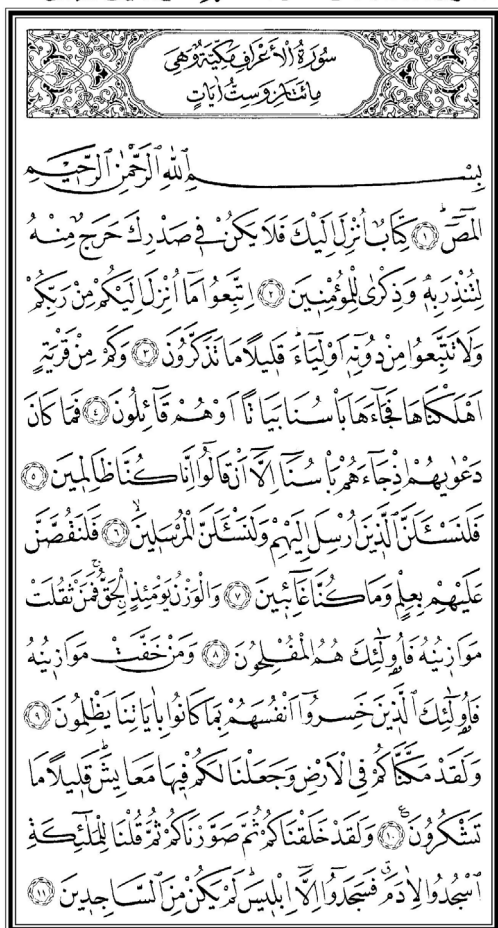 سُورَةُ الْأَعْرَافِ مَكِّيَّةٌ وَهِيَ
مِائَتَانِ وَسِتُّ اٰيَاتٍ
بِسْمِ اللّٰهِ الرَّحْمٰنِ الرَّحِيمِ
الٓمٓصٓ ۚ ﴿١﴾ كِتَابٌ اُنْزِلَ اِلَيْكَ فَلَا يَكُنْ فٖى صَدْرِكَ حَرَجٌ مِنْهُ
لِتُنْذِرَ بِهٖ وَذِكْرٰى لِلْمُؤْمِنٖينَ ﴿٢﴾ اِتَّبِعُوا مَٓا اُنْزِلَ اِلَيْكُمْ مِنْ رَبِّكُمْ
وَلَا تَتَّبِعُوا مِنْ دُونِهٖٓ اَوْلِيَٓاءَ ۜ قَلٖيلًا مَا تَذَكَّرُونَ ﴿٣﴾ وَكَمْ مِنْ قَرْيَةٍ
اَهْلَكْنَاهَا فَجَٓاءَهَا بَأْسُنَا بَيَاتًا اَوْ هُمْ قَٓائِلُونَ ﴿٤﴾ فَمَا كَانَ
دَعْوٰيهُمْ اِذْ جَٓاءَهُمْ بَأْسُنَٓا اِلَّٓا اَنْ قَالُٓوا اِنَّا كُنَّا ظَالِمٖينَ ﴿٥﴾
فَلَنَسْـَٔلَنَّ الَّذٖينَ اُرْسِلَ اِلَيْهِمْ وَلَنَسْـَٔلَنَّ الْمُرْسَلٖينَ ۙ ﴿٦﴾ فَلَنَقُصَّنَّ
عَلَيْهِمْ بِعِلْمٍ وَمَا كُنَّا غَٓائِبٖينَ ﴿٧﴾ وَالْوَزْنُ يَوْمَئِذٍ الْحَقُّ ۚ فَمَنْ ثَقُلَتْ
مَوَازٖينُهُ فَاُو۬لٰٓئِكَ هُمُ الْمُفْلِحُونَ ﴿٨﴾ وَمَنْ خَفَّتْ مَوَازٖينُهُ
فَاُو۬لٰٓئِكَ الَّذٖينَ خَسِرُٓوا اَنْفُسَهُمْ بِمَا كَانُوا بِاٰيَاتِنَا يَظْلِمُونَ ﴿٩﴾
وَلَقَدْ مَكَّنَّاكُمْ فِى الْاَرْضِ وَجَعَلْنَا لَكُمْ فٖيهَا مَعَايِشَ ۜ قَلٖيلًا مَا
تَشْكُرُونَ ﴿١٠﴾ وَلَقَدْ خَلَقْنَاكُمْ ثُمَّ صَوَّرْنَاكُمْ ثُمَّ قُلْنَا لِلْمَلٰٓئِكَةِ
اسْجُدُوا لِاٰدَمَ ۗ فَسَجَدُٓوا اِلَّٓا اِبْلٖيسَ ۜ لَمْ يَكُنْ مِنَ السَّاجِدٖينَ ﴿١١﴾